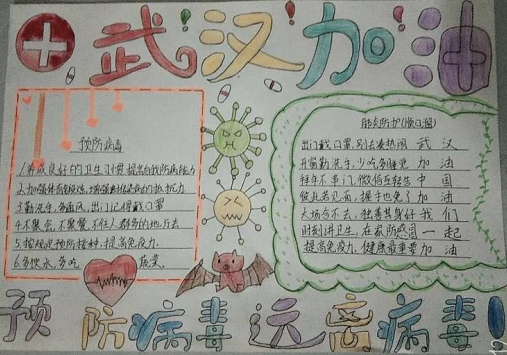 武汉加油
预防病毒
1.养成良好的卫生习惯 提高自我防病能力
2.加强体育锻炼,增强身体 的抵抗力
3.勤洗手,多通风,出门记得戴口罩
4.不聚会,不聚餐,不往人群多的地方去
5.按规定预防接种,提高免疫力.
6.多饮水,多吃 蔬菜.
肺炎防护(顺口溜)
出门戴口罩,别去凑热闹 武 汉
开窗勤洗手,少吃多睡觉 加 油
拜年不串门,微信互转告 中 国
彼此若见面,握手也免了 加 油
大场合不去,独善其身好 我 们
时刻讲卫生,在家防感冒 一 起
提高免疫力,健康最重要 加 油
预防病毒远离病毒!